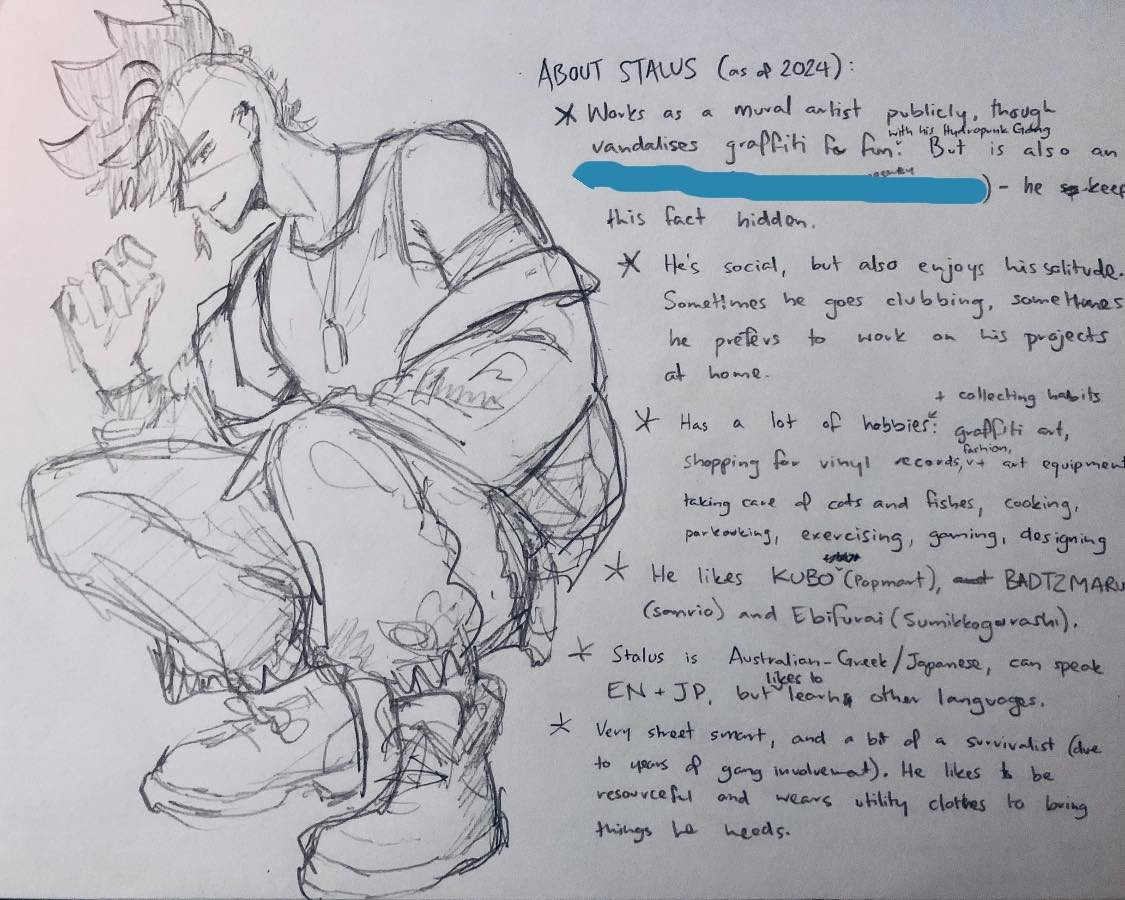 ABOUT STALUS (as of 2024):
* Works as a mural artist publicly, though
with his Hydropunk Gang
vandalises graffiti for fun. But is also an
) - he keep
this fact hidden.
* He's social, but also enjoys his solitude.
Sometimes he goes clubbing, sometimes
he prefers to work on his projects
at home.
+ collecting habits
* Has a lot of hobbies: graffiti art,
fashion,
shopping for vinyl records, + art equipment
taking care of cats and fishes, cooking,
parkouking, exercising, gaming, designing
* He likes KUBO (Popmart), BADTZMARU
(sanrio) and Ebifurai (Sumikkogurashi).
* Stalus is Australian-Greek/Japanese, can speak
likes to
EN + JP, but learn other languages.
* Very street smart, and a bit of a survivalist (due
to years of gang involvemat). He likes to be
resourceful and wears utility clothes to bring
things he needs.